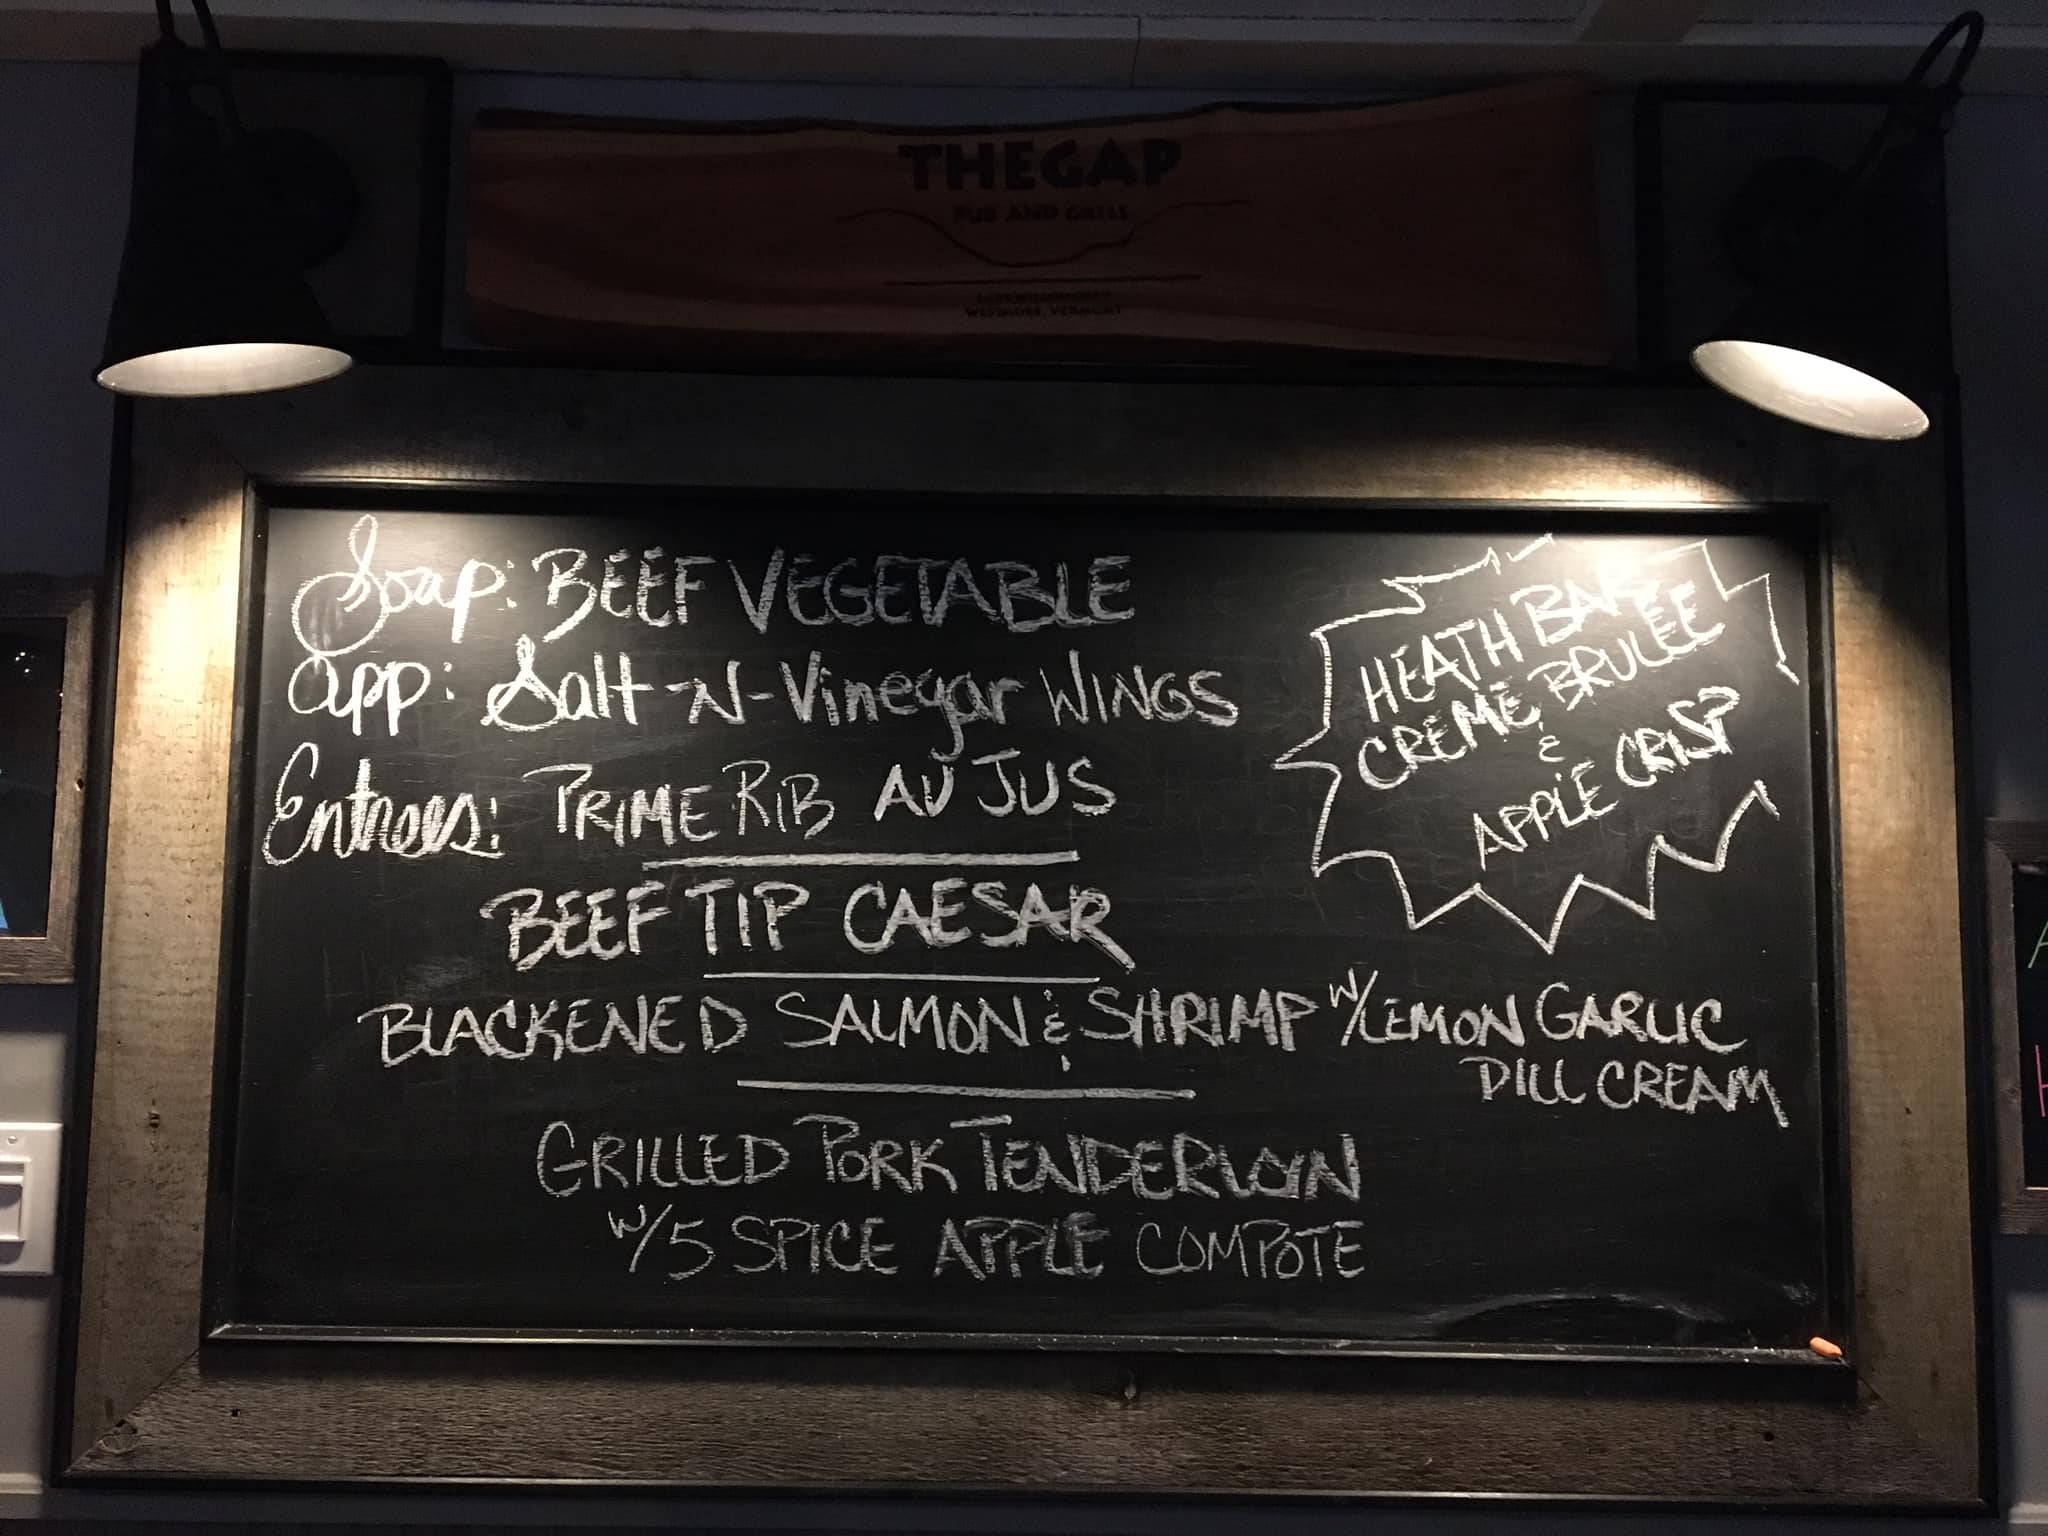 THE GAP
PUB AND GRILL
WESTMORE, VERMONT
Soup: BEEF VEGETABLE
App: Salt-N-Vinegar WINGS
Entrees: PRIME RIB AU JUS
BEEF TIP CAESAR
BLACKENED SALMON & SHRIMP W/LEMON GARLIC
DILL CREAM
GRILLED PORK TENDERLOIN
W/5 SPICE APPLE COMPOTE
HEATH BAR
CREME BRULEE
&
APPLE CRISP